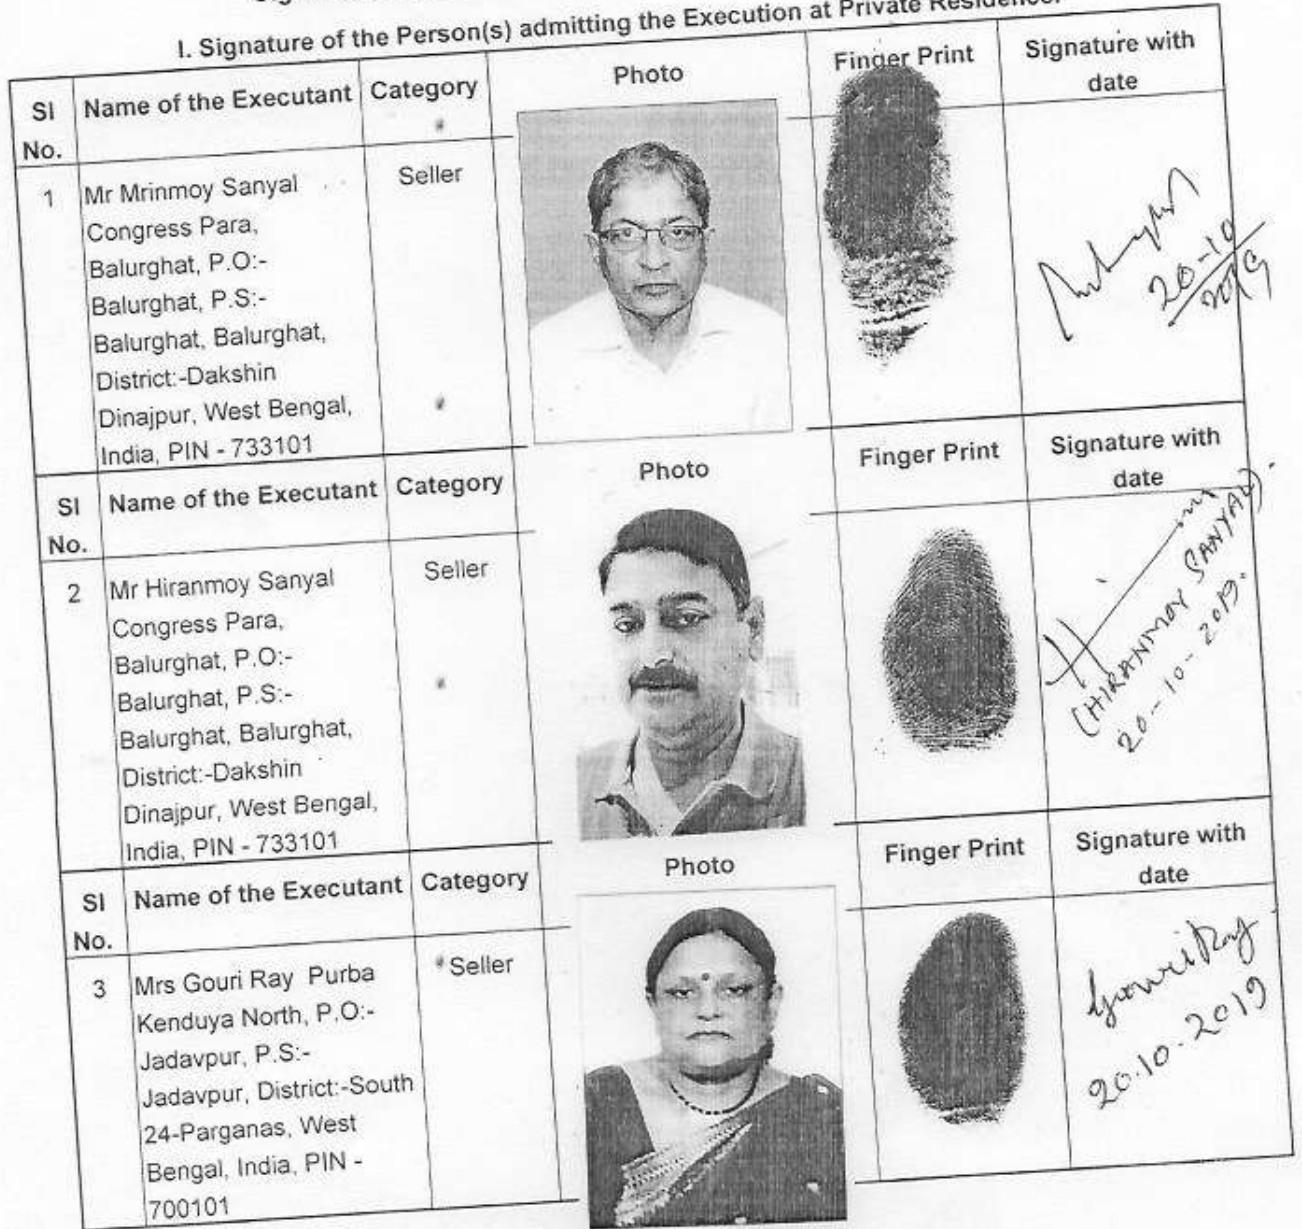 I. Signature of the Person(s) admitting the Execution at Private Residence.
Sl No. Name of the Executant Category Photo Finger Print Signature with date
1 Mr Mrinmoy Sanyal Seller
Congress Para,
Balurghat, P.O:-
Balurghat, P.S:-
Balurghat, Balurghat,
District:-Dakshin
Dinajpur, West Bengal,
India, PIN - 733101
20-10
2019
Sl No. Name of the Executant Category Photo Finger Print Signature with date
2 Mr Hiranmoy Sanyal Seller
Congress Para,
Balurghat, P.O:-
Balurghat, P.S:-
Balurghat, Balurghat,
District:-Dakshin
Dinajpur, West Bengal,
India, PIN - 733101
(HIRANMOY SANYAL).
20-10-2019.
Sl No. Name of the Executant Category Photo Finger Print Signature with date
3 Mrs Gouri Ray Purba Seller
Kenduya North, P.O:-
Jadavpur, P.S:-
Jadavpur, District:-South
24-Parganas, West
Bengal, India, PIN -
700101
Gouri Ray
20.10.2019